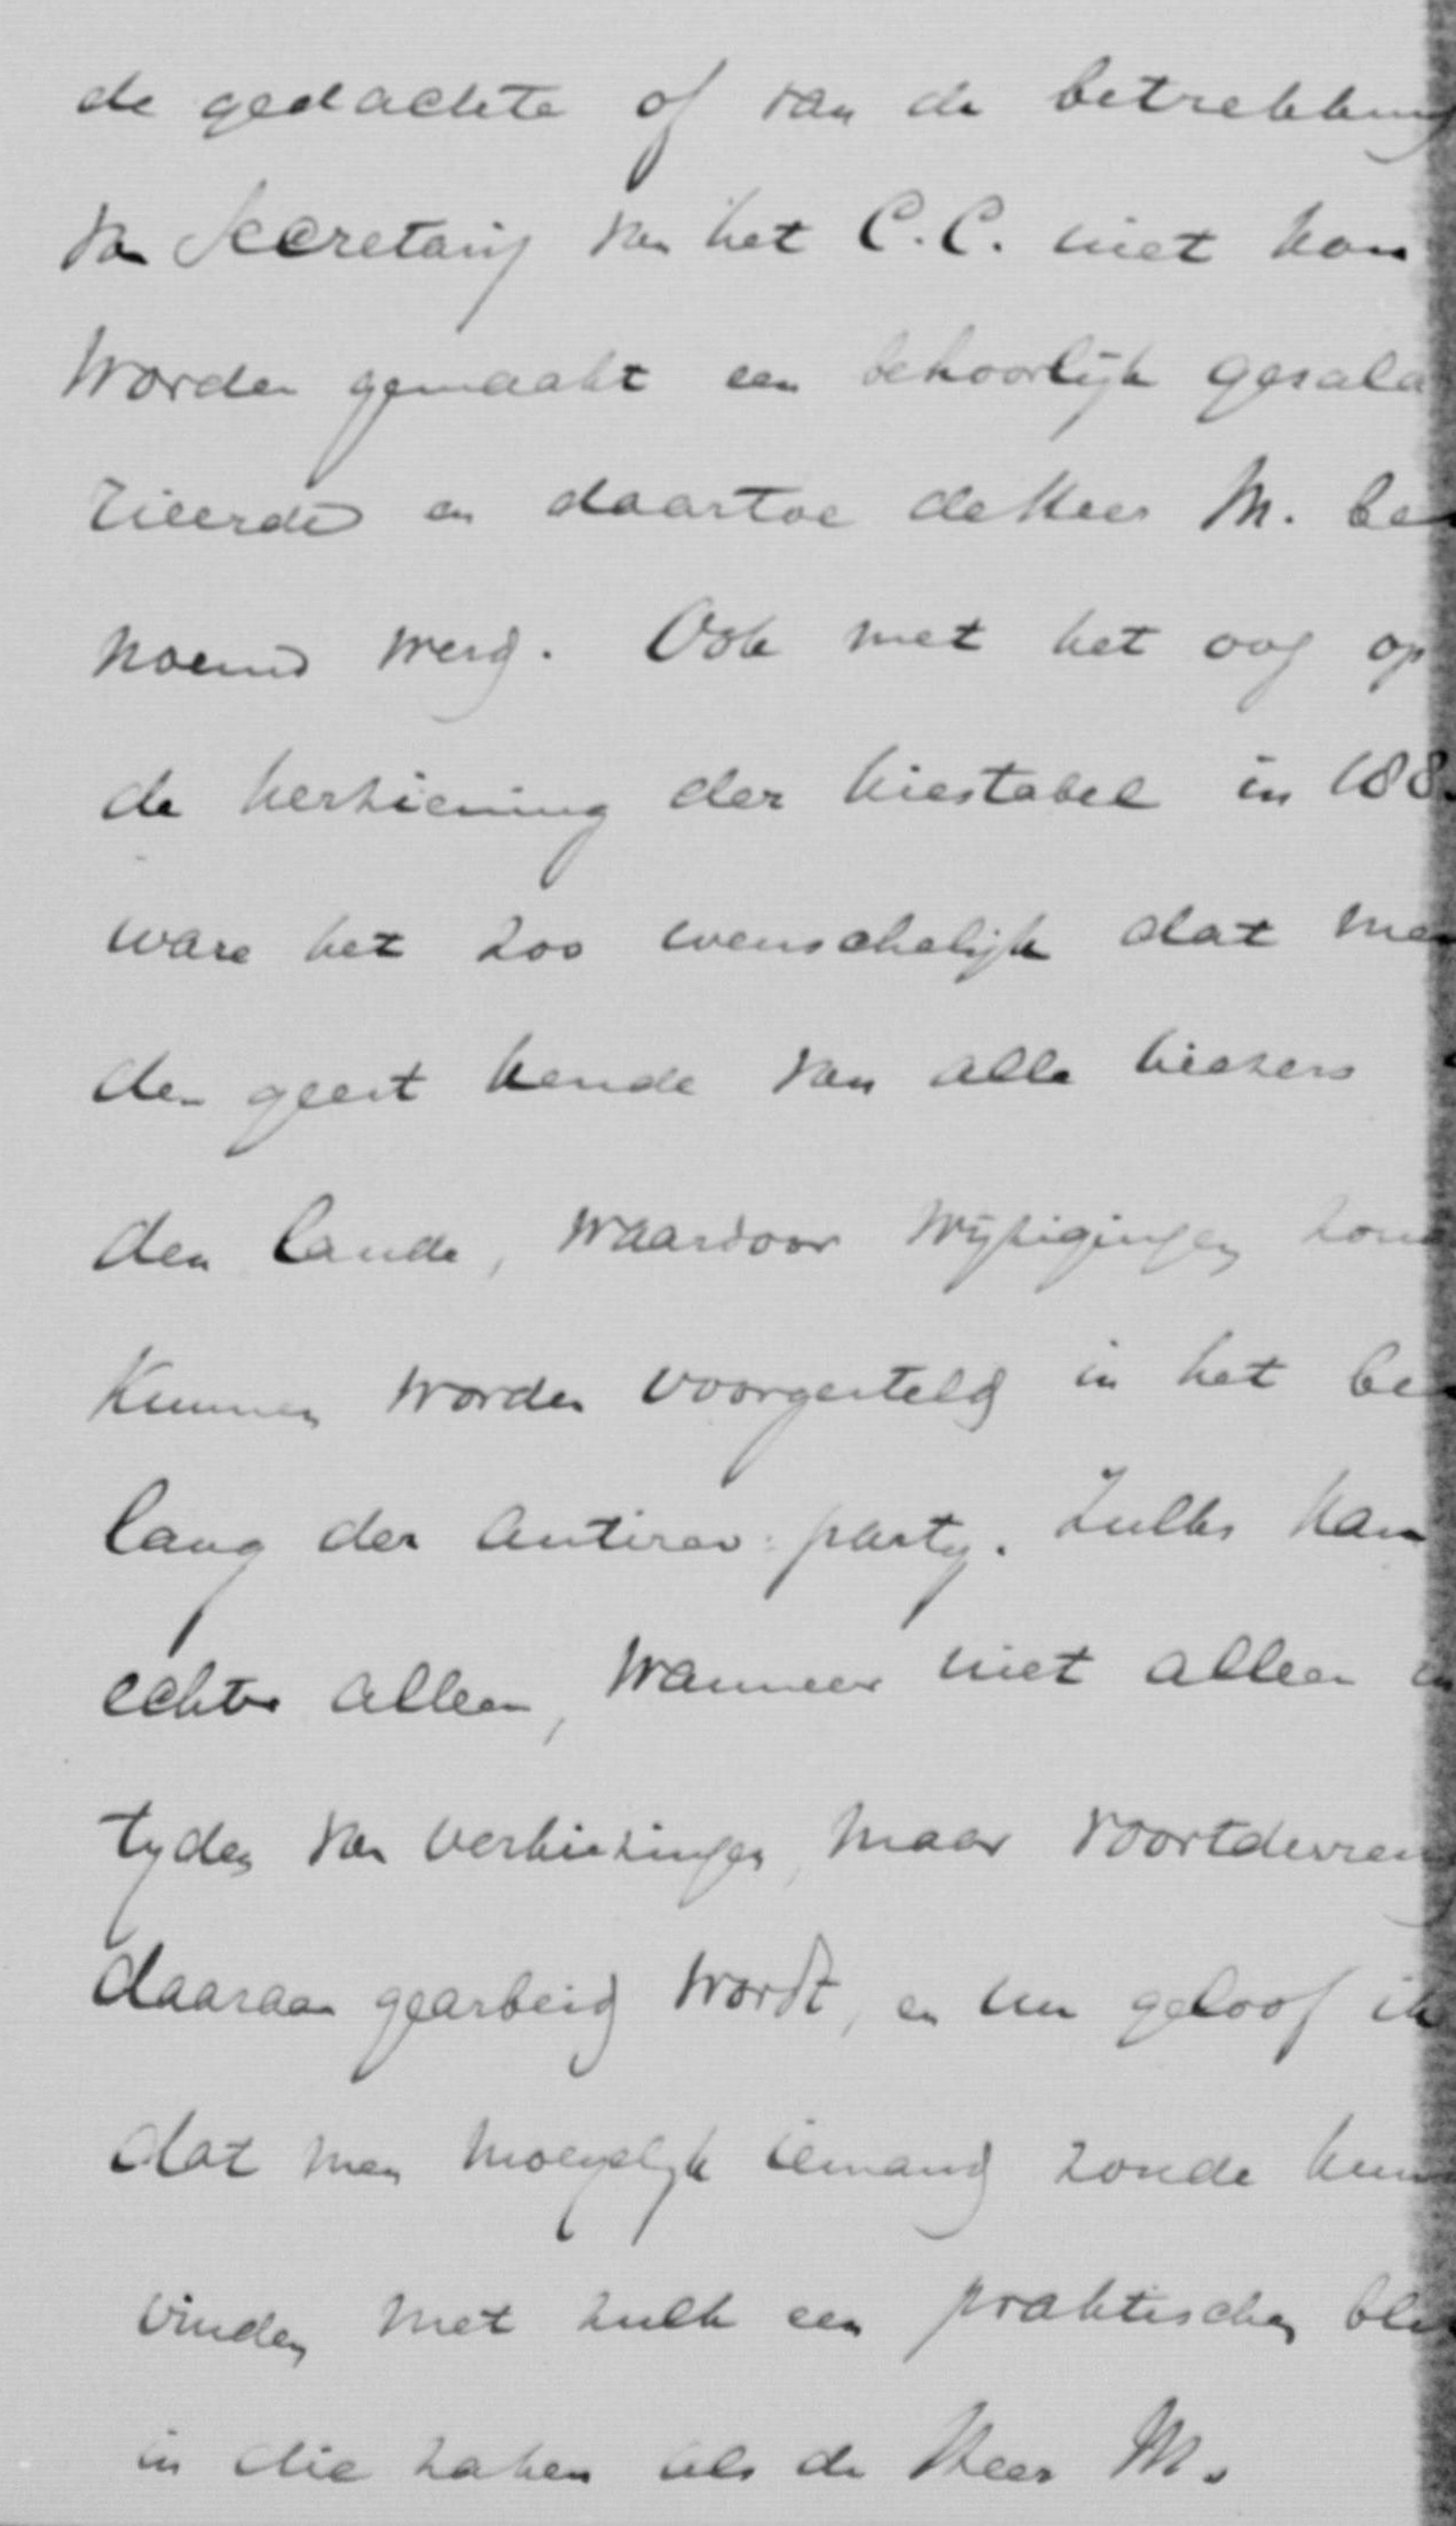 de gedachte of van de betrekking
van Secretaris van het C.C. niet kon
worden gemaakt een behoorlijk gesala
rieerde en daartoe de Heer M. be
noemd werd. Ook met het oog op
de herziening der kiestabel in 188
ware het zoo wenschelijk dat men
den geest kende van alle kiezers
den lande, waardoor wijzigingen zoud
kunnen worden voorgesteld in het be
lang der antirev: party. Zulks kan
echter alleen, wanneer niet alleen in
tyden van verkiezingen, maar voortdurend
daaraan gearbeid wordt, en nu geloof ik
dat men moeyelyk iemand zoude kunn
vinden met zulk een praktischen bli
in die zaken als de Heer M.